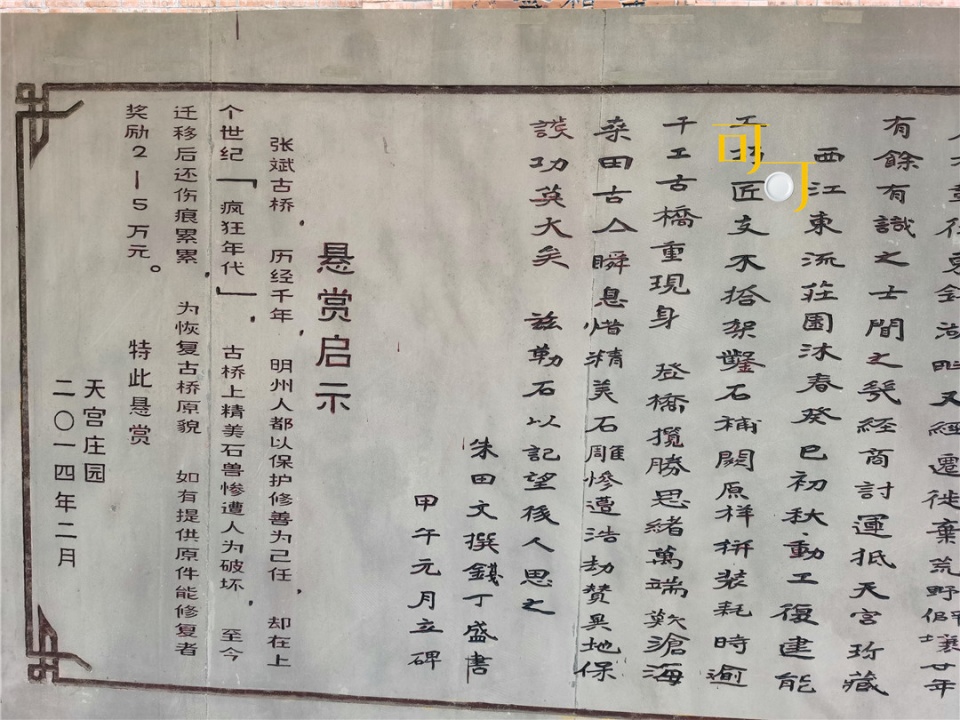 有餘有識之士聞之幾經商討運抵天宮珍藏
西江東流莊園沐春癸巳初秋動工復建能
匠支木搭架鑿石補闕原样拼装耗時逾
千工古橋重現身 登橋攬勝思緒萬端歎滄海
桑田古人瞬息惜精美石雕慘遭浩劫贊異地保
護功莫大矣 兹勒石以記望後人思之
朱田文撰錢丁盛書
甲午元月立碑
悬赏启示
张斌古桥，历经千年，明州人都以保护修善为己任，却在上
个世纪「疯狂年代」，古桥上精美石兽惨遭人为破坏，至今
迁移后还伤痕累累，为恢复古桥原貌 如有提供原件能修复者
奖励2—5万元。 特此悬赏
天宫庄园
二〇一四年二月